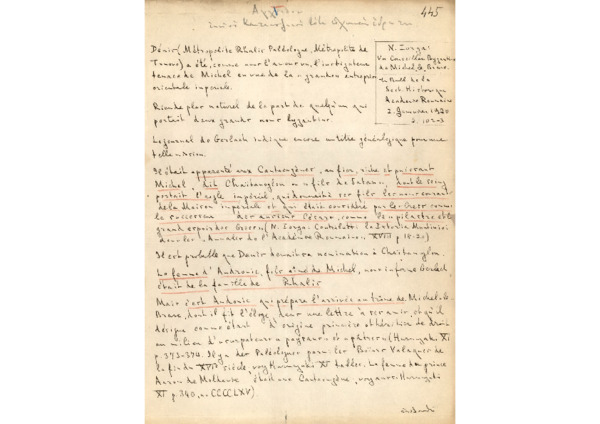 445
N. Iorga:
Un Conseiller Byzantin
de Michel le Brave
Bull de la
Sect. Historique
Académie Roumaine
2. Janvier 1920
Dénis (Métropolite Rhalis Paléologue, Métropolite de
Tirnovo) a été, comme nous l'avons vu, l'instigateur
tenace de Michel en vue de la grandeur entreprise
orientale impériale.
Rien de plus naturel de la part de quelqu'un qui
portait deux grands noms byzantins.
Le journal de Gerlach indique encore un titre généalogique pour une
telle action.
Il était apparenté aux Cantacuzènes, au fier, riche et puissant
Michel, dit Chaïtanoglou ou fils de Satan, dont le seing
portait l'aigle impérial, qui donnait à ses fils les noms
de la Maison impériale et qui était considéré par les Grecs comme
le successeur des anciens Césars, comme le pilastre et le
grand espoir des Grecs, (N. Iorga: Contributii la Istoria Munteniei
dans les Annales de l'Académie Roumaine, XVIII p. 18-20)
Il est probable que Denis devait sa nomination à Chaïtanoglou.
La femme d'Andronic, fils aîné de Michel, nous informe Gerlach,
était de la famille de Rhalis
Mais c'est Andonic, qui prépare l'arrivée au trône de Michel-le-
Brave, dont il fit l'éloge, dans une lettre à ce sujet, et qu'il
désigne comme étant d'origine princière et héritier de droit
au milieu d'usurpateurs (Hurmuzaki XI
p. 373-374. Il y a des Paléologues parmi les Boïars Valaques de
la fin du XVIe siècle, voy. Hurmuzaki XI tables. La femme du prince
Aaron de Moldavie était une Cantacuzène, voy. aussi Hurmuzaki
XI p. 340, n. CCCCLXV)